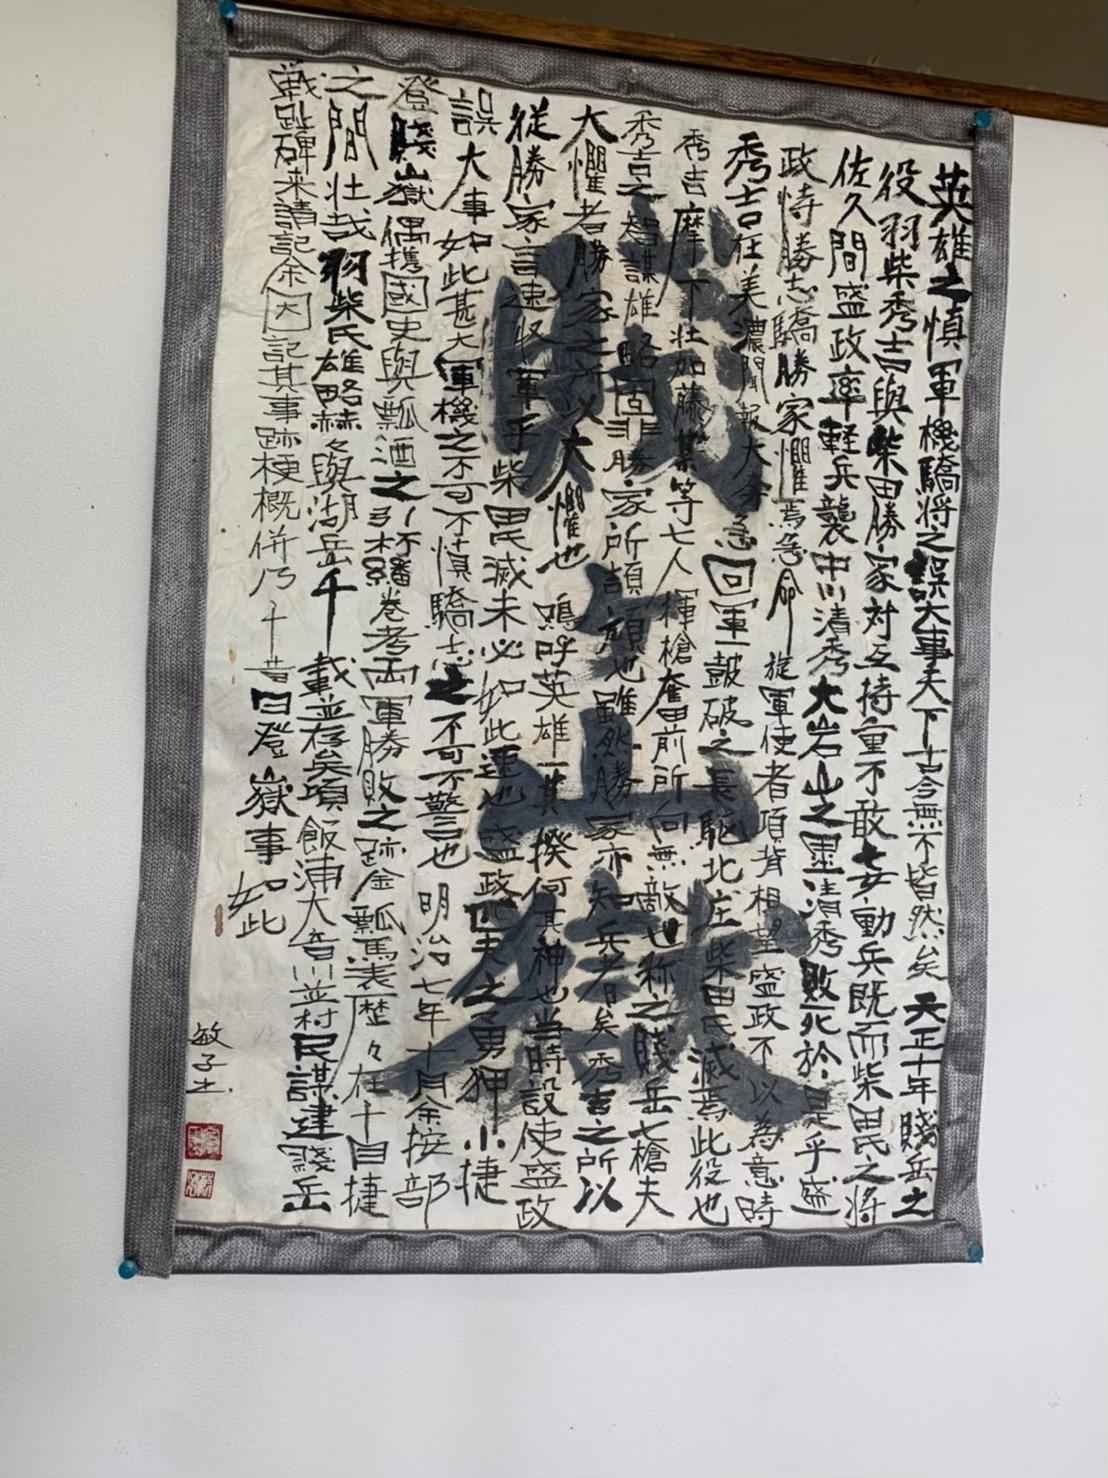 英雄之慎軍機驕将之誤大事天下古今無不皆然矣 天正十年賤岳之
役羽柴秀吉與柴田勝家対互持重不敢妄動兵既而柴田氏之将
佐久間盛政率軽兵襲中川清秀大岩山之塁清秀敗死於是乎盛
政恃勝志驕勝家懼焉急命旋軍使者項背相望盛政不以為意時
秀吉在美濃聞報大奎急回軍一鼓破之長駆北庄柴田氏滅焉此役也
秀吉摩下壮加藤某等七人揮槍奮前所向無敵也称之賤岳七槍夫
秀吉之智謀雄略固非勝家所頡頏也雖然勝家亦知兵者矣秀吉之所以
大懼者勝家之所以大懼也 嗚呼英雄一其揆何其神也当時設使盛政
従勝家言速収軍乎柴田氏滅未必如此速也盛政匹夫之勇狎小捷
誤大事如此甚大軍機之不可不慎驕志之不可不警也 明治七年十月余按部
登賤嶽偶携國史與瓢酒之杯繙巻考両軍勝敗之跡金瓢馬表歴々在十目捷
之間壮哉羽柴氏雄略赫々與湖岳千載並存矣項飯浦大音川並村民謀建賤岳
戦趾碑来請記余因記其事跡梗概併乃十昔日登嶽事如此
敏子書
賤ヶ山嶽